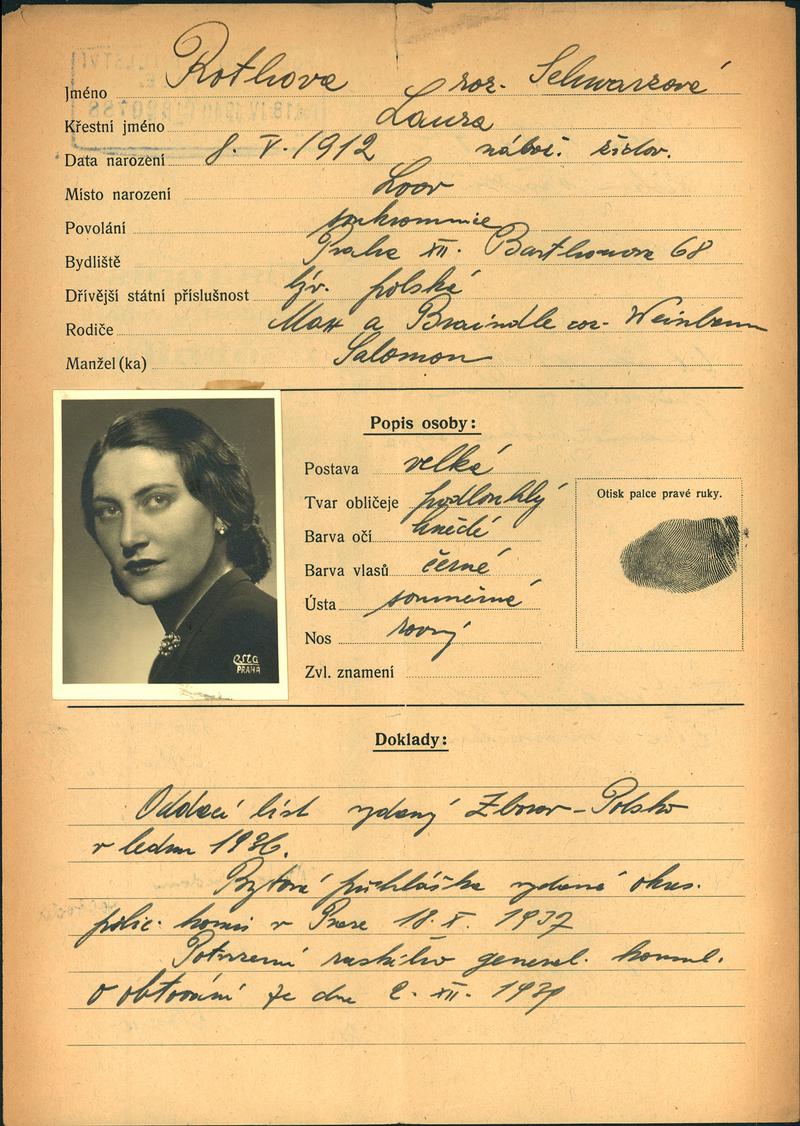 Jméno Rothova roz. Schwarzová
Křestní jméno Laura
Data narození 8. V. 1912 nábož. židov.
Místo narození Lvov
Povolání soukromnice
Bydliště Praha XII. Barthouova 68
Dřívější státní příslušnost býv. polská
Rodiče Max a Braindle roz.
Manžel (ka) Salomon
Popis osoby:
Postava velká
Tvar obličeje podlouhlý
Barva očí hnědé
Barva vlasů černé
Ústa souměrné
Nos rovný
Zvl. znamení
Otisk palce pravé ruky.
PRAHA
Doklady:
Oddací list vydaný Zborov - Polsko
v lednu 1936.
Bytová přihláška vydaná okres.
polic. komis v Praze 18. X. 1937
Potvrzení general. konsul.
o obtování ze dne 2. XII. 1939